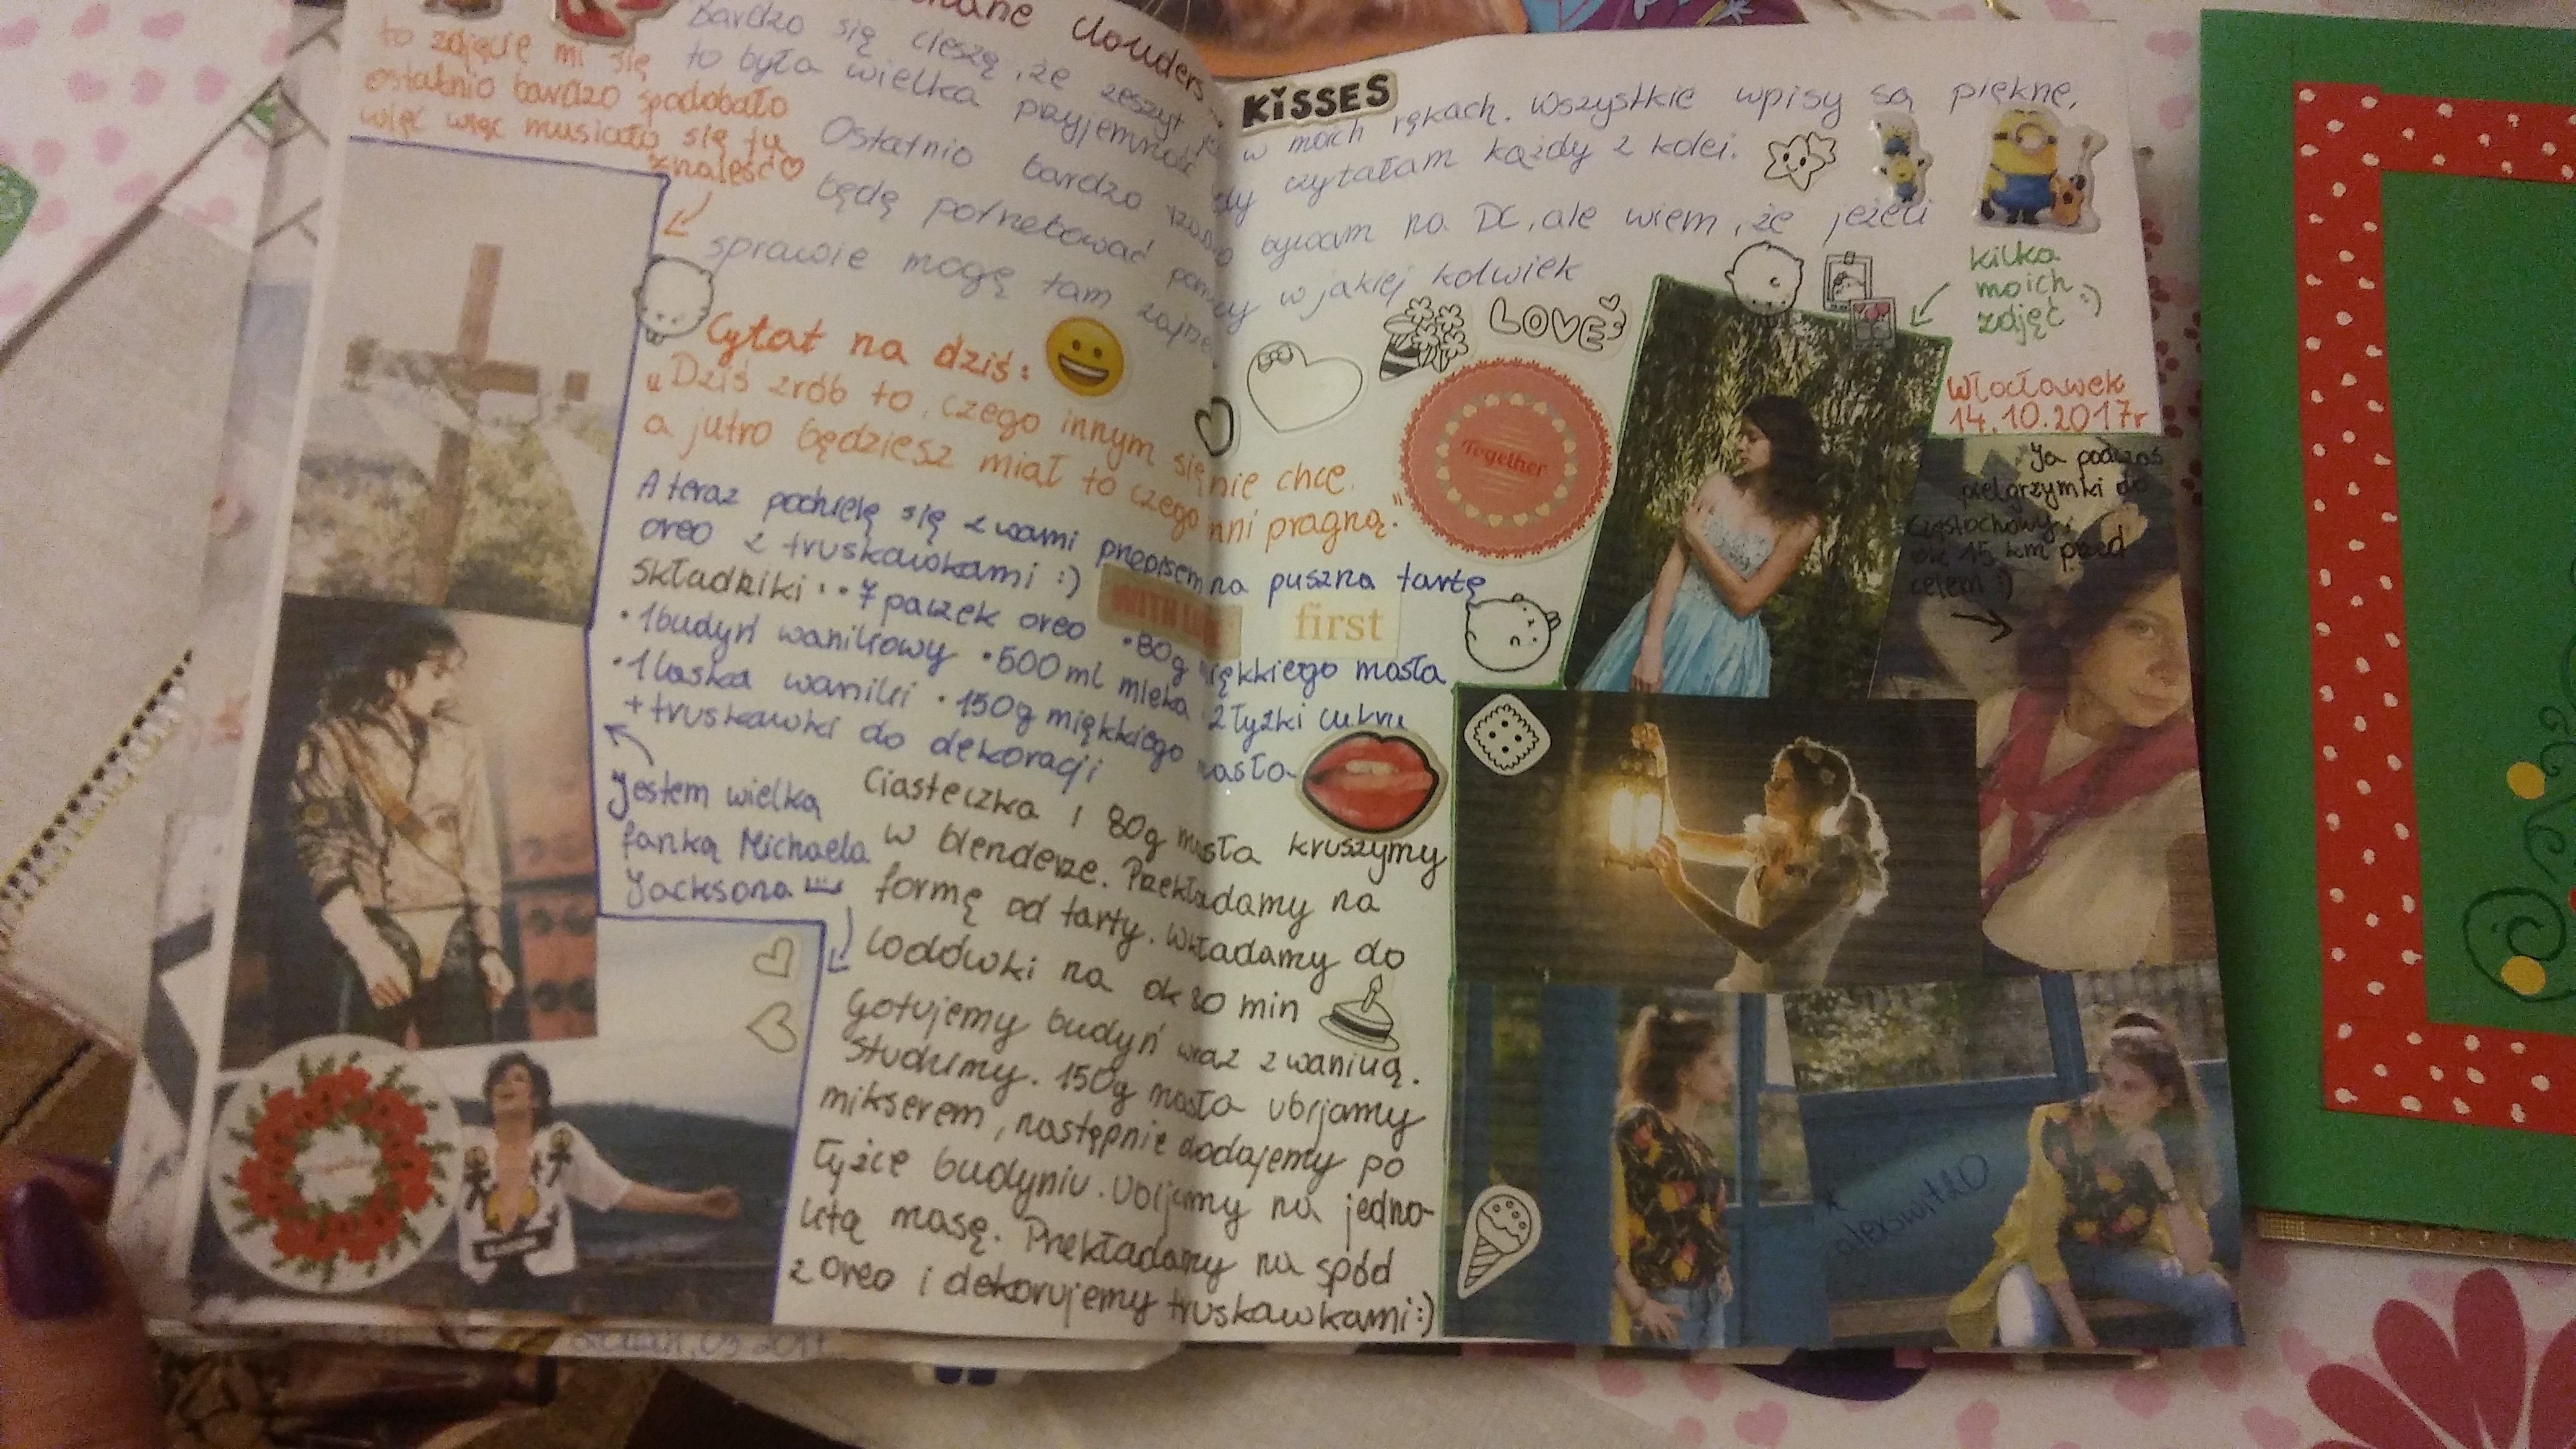 kochane Clouders
Bardzo się cieszę, że zeszyt jest w moich rękach. Wszystkie wpisy są piękne,
to była wielka przyjemność gdy czytałam każdy z kolei.
Ostatnio bardzo rzadko bywam na DC, ale wiem, że jeżeli
będę potrzebować pomocy w jakiej kolwiek
sprawie mogę tam zajrzeć
to zdjęcie mi się
ostatnio bardzo spodobało
więc więc musiało się tu
znaleść
KISSES
Cytat na dziś:
„Dziś zrób to, czego innym się nie chce.
a jutro będziesz miał to czego inni pragną."
A teraz podzielę się z wami przepisem na puszną tartę
oreo z truskawkami :)
składniki: • 7 paczek oreo • 80g miękkiego masła
• 1 budyń waniliowy • 500ml mleka 2 łyżki cukru
• 1 laska wanilii • 150g miękkiego masła
+ truskawki do dekoracji
WITH LOVE
first
Jestem wielką
fanką Michaela
Jacksona
Ciasteczka i 80g masła kruszymy
w blenderze. Przekładamy na
formę od tarty. Wkładamy do
lodówki na ok 30 min
Gotujemy budyń wraz z wanilią.
Studzimy. 150g masła ubijamy
mikserem, następnie dodajemy po
łyżce budyniu. Ubijamy na jedno-
litą masę. Przekładamy na spód
z Oreo i dekorujemy truskawkami:)
LOVE
Together
kilka
moich
zdjęć :)
Włocławek
14.10.2017r
Ja podczas
pielgrzymki do
Częstochowy,
ok 15 km przed
celem :)